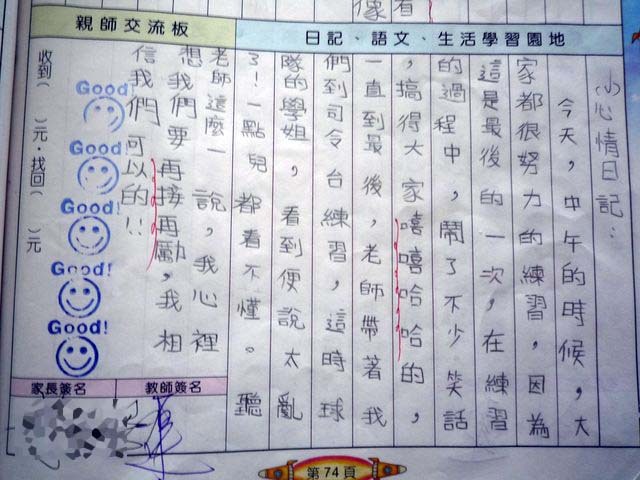 像有
日記、語文、生活學習園地
(小)心情日記：
今天，中午的時候，大
家都很努力的練習，因為
這是最後的一次，在練習
的過程中，鬧了不少笑話
，搞得大家嘻嘻哈哈的，
一直到最後，老師帶著我
們到司令台練習，這時球
隊的學姐，看到便說太亂
了！一點兒都看不懂。聽
親師交流板
老師這麼一說，我心裡
想我們要再接再勵，我相
信我們可以的!!
Good!
Good!
Good!
Good!
Good!
收到（ ）元．找回（ ）元
教師簽名
家長簽名
第74頁